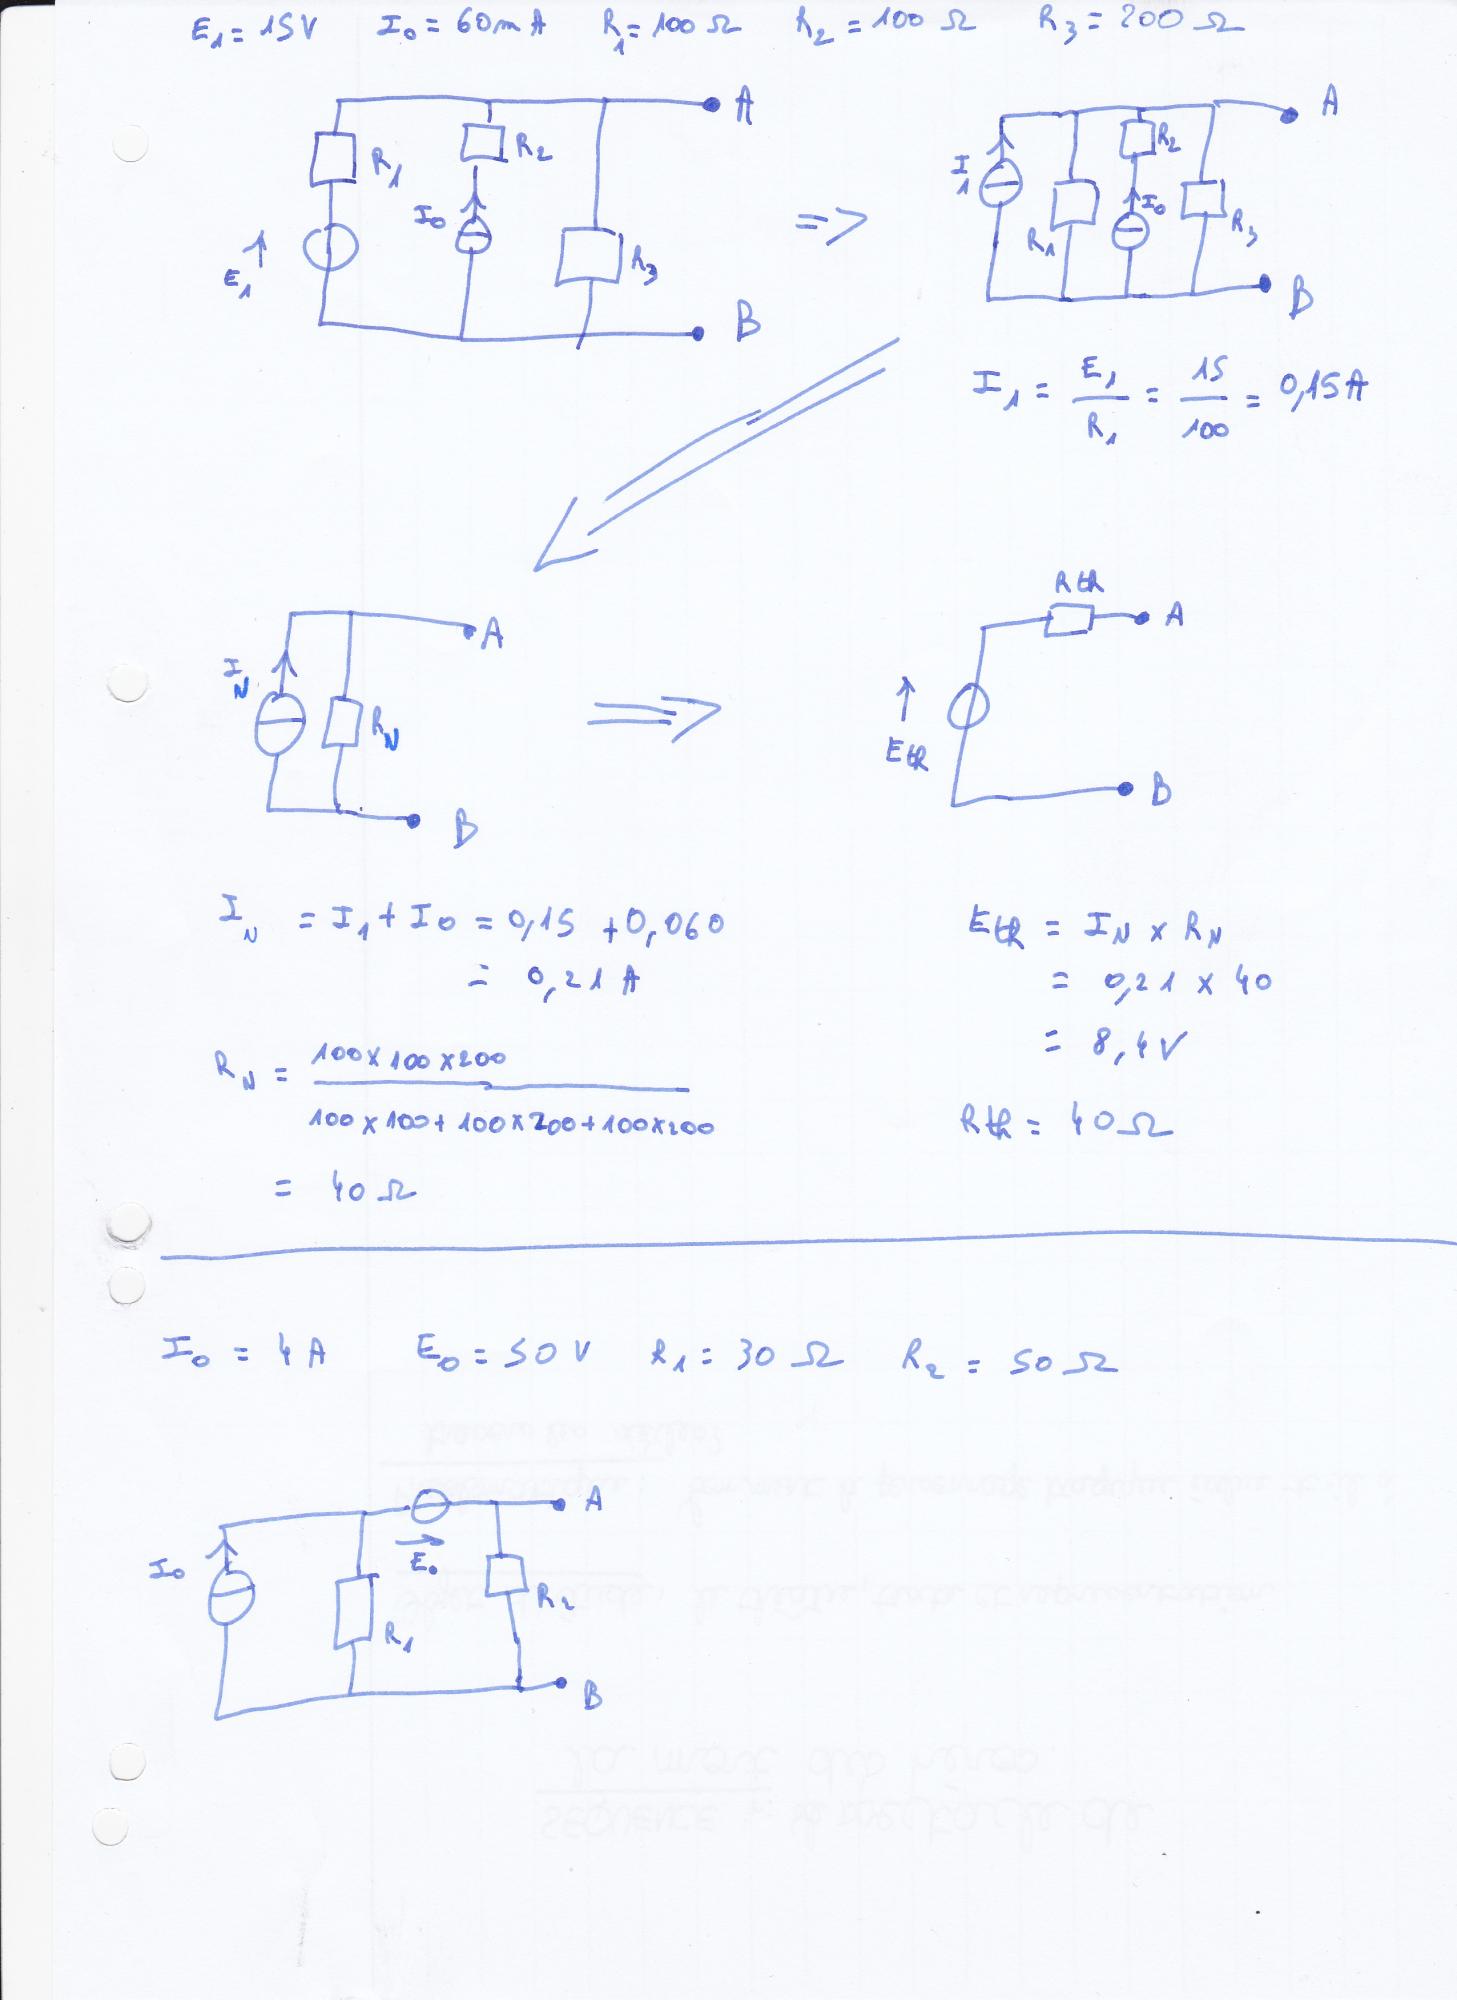 E1 = 15V I0 = 60mA R1 = 100 Ω R2 = 100 Ω R3 = 200 Ω
A
R1
R2
I0
E1 ↑
R3
B
=>
A
I1
R2
I0
R1
R3
B
I1 = E1/R1 = 15/100 = 0,15A
A
IN
RN
B
Rth
A
↑
Eth
B
IN = I1 + I0 = 0,15 + 0,060
= 0,21 A
RN = 100 x 100 x 200
100 x 100 + 100 x 200 + 100 x 200
= 40 Ω
Eth = IN x RN
= 0,21 x 40
= 8,4V
Rth = 40Ω
I0 = 4A E0 = 50V R1 = 30 Ω R2 = 50Ω
A
I0
E0
R1
R2
B